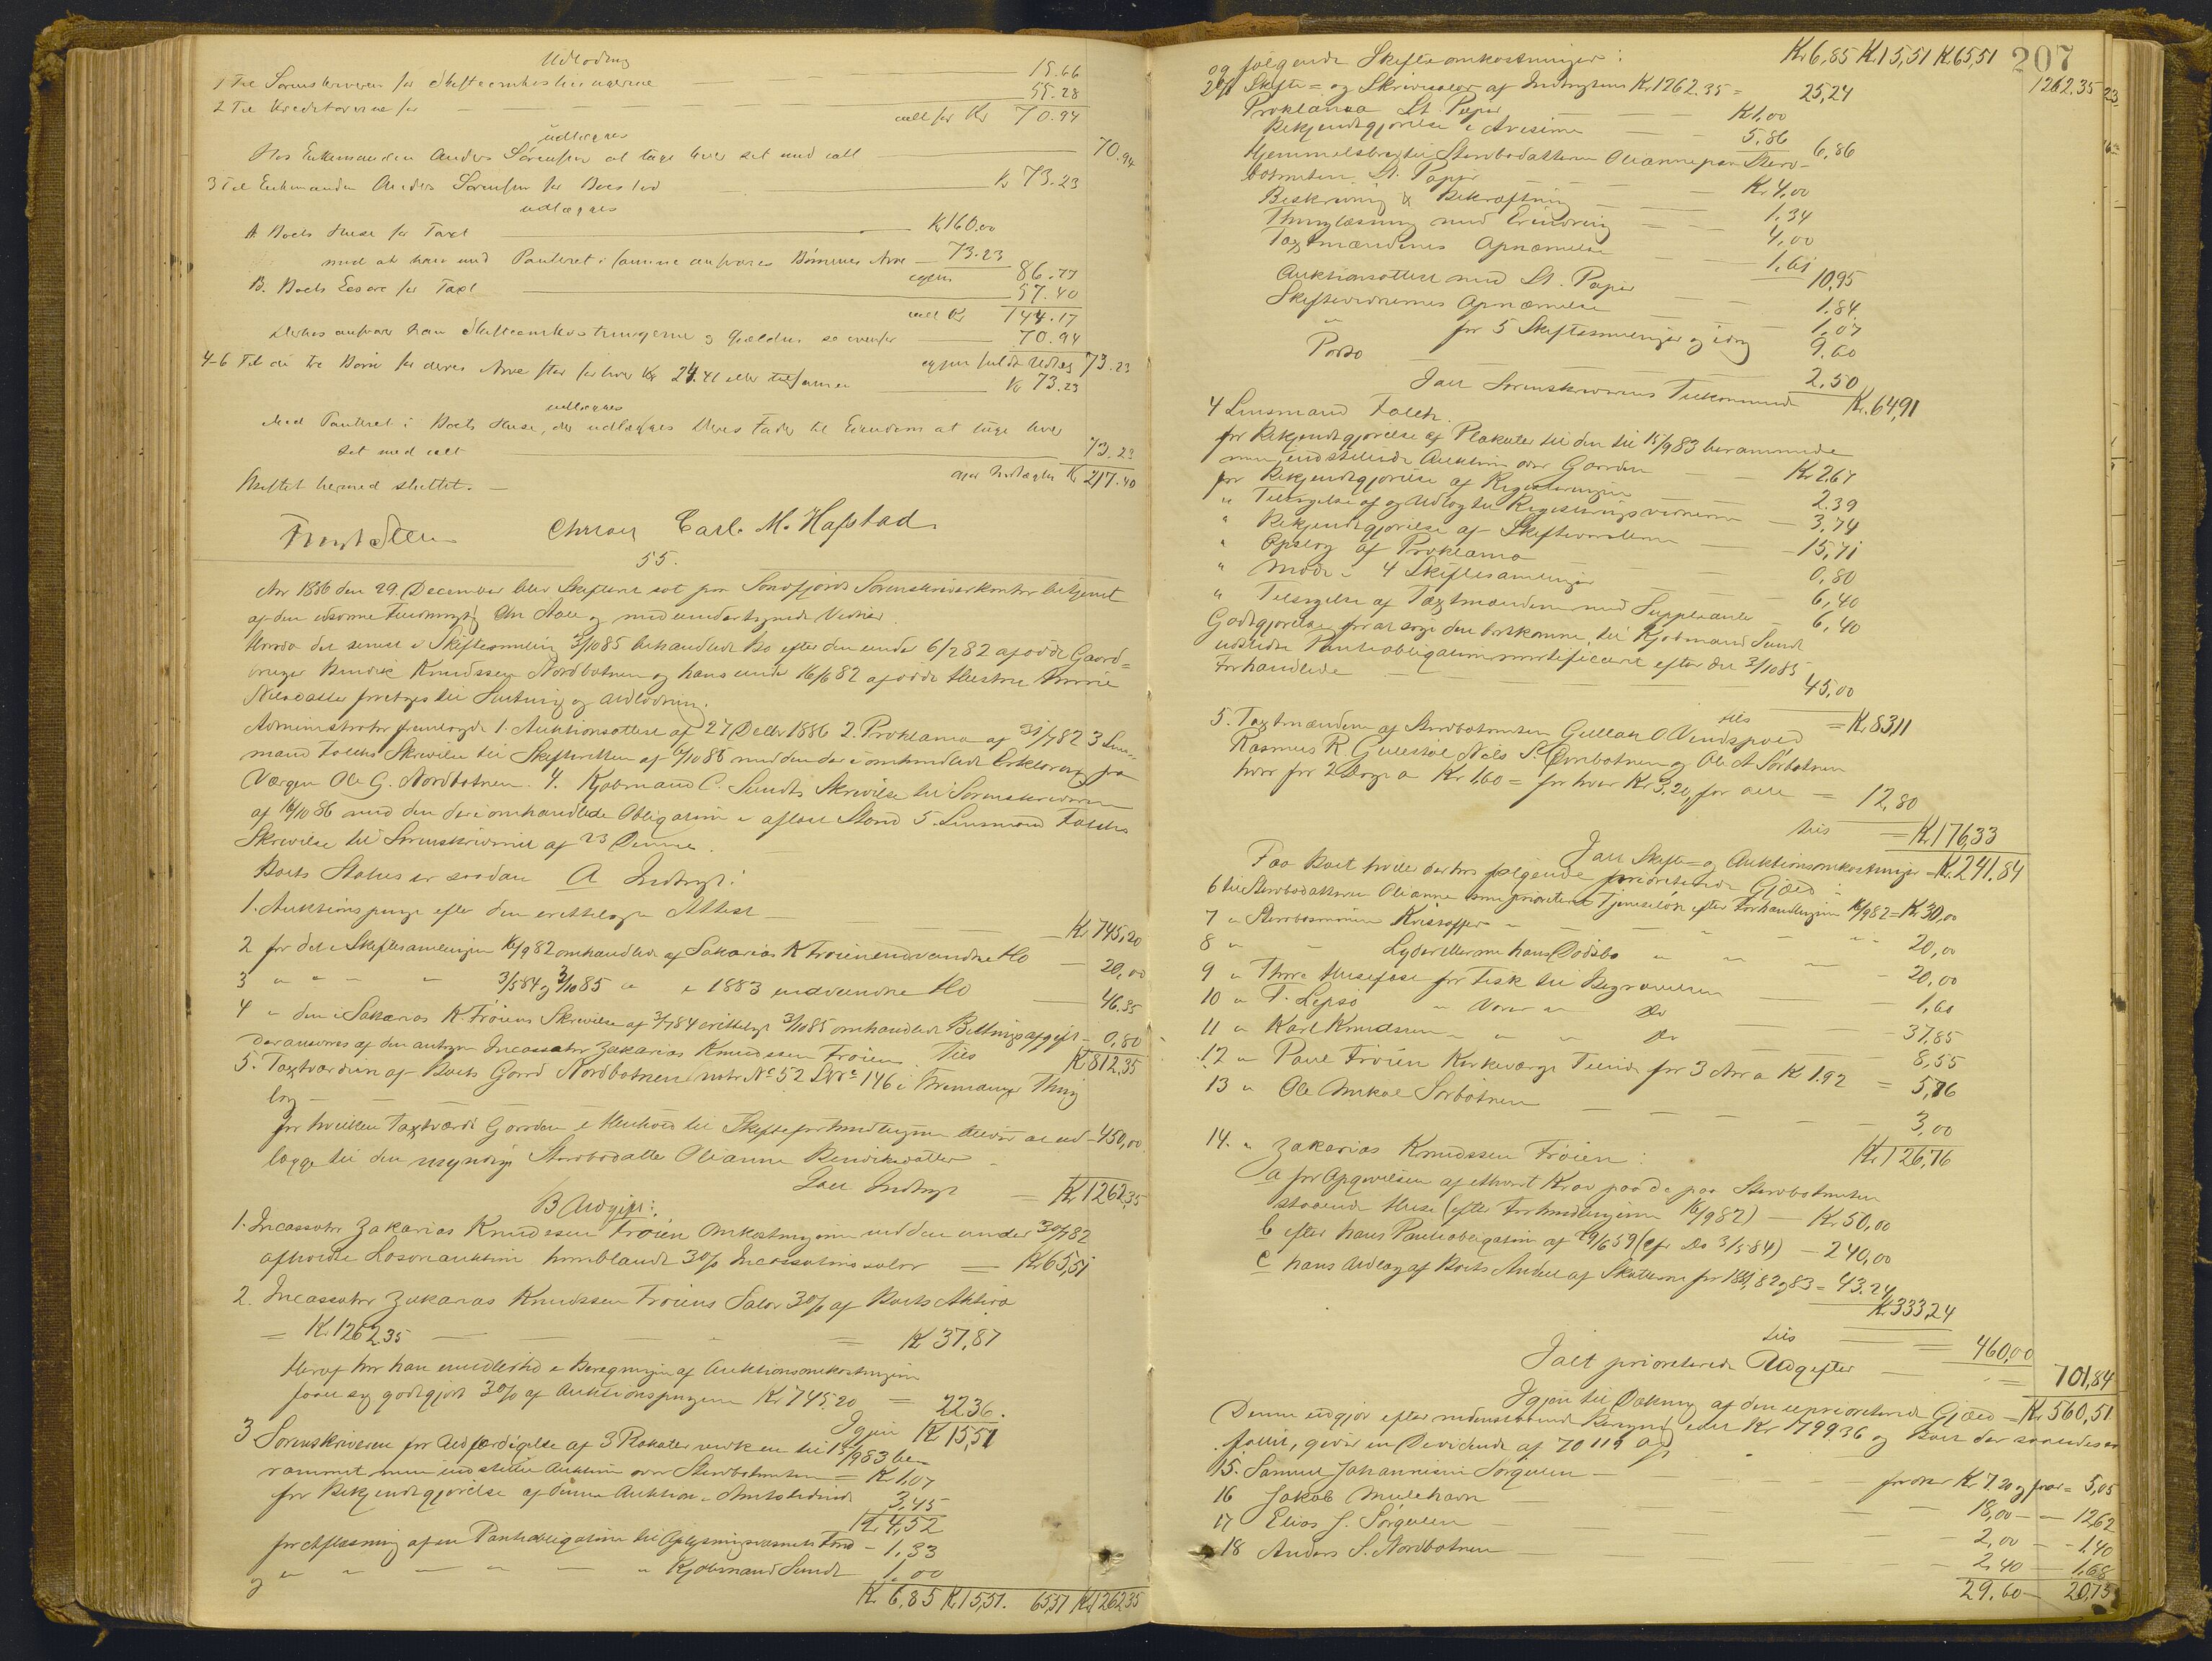 Udlodning
1 Til Sorenskriveren for Skifteomkostningerne — 15.66
2 Til Kreditorerne for — 55.28
alt for Kr 70.94
udlægges
Hos Enkemanden Anders Sörensen at tage hver sit med alt — 70.94
3 Til Enkemanden Anders Sörensen for Boeslod — Kr 73.23
udlægges
A Boets Huse for Taxt — Kr 160.00
med at have med Panteret i samme ansvares Börnenes Arv — 73.23
igjen 86.77
B. Boets Løsøre for Taxt — 57.40
alt Kr 144.17
Derhos ansvarer han Skifteomkostningerne og Gjælden se ovenfor — 70.94
igjen fuldt Udlæg 73.23
4-6 Til de tre Børn for deres Arv efter for hver Kr 24.41 eller tilsammen — Kr 73.23
udlægges
Med Panteret i Boets Huse, der udlægges deres Fader til Eiendom at tage hver
sit med alt — 73.23
Skiftet hermed sluttet. — Kr 217.40
Carl M. Hafstad
55.
Aar 1886 den 29. December blev Skifteret sat paa Söndfjords Sorenskriverkontor betjent
af den edsvorne Fuldmægtig Chr Aall og medundertegnede Vidner.
Hvorda det senest i Skiftesamling 3/10 85 behandlede Bo efter den under 6/2 82 afdöde Gaard-
bruger Bendik Knudssen Nordbotnen og hans under 16/6 82 afdöde Hustru
Nilsdatter foretoges til Slutning og Udlodning.
Administrator fremlagde 1. Auktionsattest af 27 Decbr 1886 2. Proklama af 31/7 82 3 Lens-
mand Falchs Skrivelse til Skifteretten af /10 85 med den deri omhandlede Erklæring fra
Værgen Ole G. Nordbotnen. 4. Kjøbmand C. Sundts Skrivelse til Sorenskriveren
af 16/10 86 med den deri omhandlede Obligation i aflæst Stand 5. Lensmand Falchs
Skrivelse til Sorenskriveren af 23 Dennes.
Boets Status er saadan A Indtægt:
1. Auktionspenge efter den erettelagte Attest — Kr 745,20
2 for det i Skiftesamlingen 16/9 82 omhandlede af Sakarias K Fröien indvundne Hö — 20,00
3 " " " " 3/5 84 og 3/10 85 " i 1883 indvundne Hö — 46.35
4 " den i Sakarias K. Fröiens Skrivelse af 3/7 84 erettelagt 3/10 85 omhandlede Beitningsafgift — 0,80
der ansvares af den antagne Incassator Zakarias Knudssen Fröien. Tils Kr 812,35
5. Taxtværdien af Boets Gaard Nordbotnen matr. No 52 L No 146 i Bremanger Thing-
lag — — — —
for hvilken Taxtværdi Gaarden i Henhold til Skifteforhandlingerne bliver at ud- 450,00
lægge til den umyndige Stervbodatter Olianne Bendiksdatter.
Ialt Indtægt = Kr 1262,35
B Udgift:
1. Incassator Zakarias Knudssen Fröien Omkostningerne ved den under 30/7 82
afholdte Løsøreauktion hvoriblandt 3 % Incassations salær = Kr 65,51
2. Incassator Zakarias Knudssen Fröiens Salær 3 % af Boets Aktiva
= Kr 1262.35 — — — = Kr 37,87
Heraf har han imidlertid i Beregningen af Auktionsomkostningerne
faaet sig godtgjort 3 % af Auktionspengene Kr 745.20 = 22.36.
Igjen Kr 15,51
3 Sorenskriveren for Udfærdigelse af 3 Plakater til 15/9 83 be-
rammet men indstillet Auktion over Stervbotnen = Kr 1.07
for Bekjendtgjörelse af denne Auktion i Amtstidende 3,45
Kr 4,52
for Aflæsning af en Panteobligation til Oplysningsvæsenets Fond — 1,33
og " " — " — " Kjøbmand Sundt 1,00
Kr 6,85 Kr 15,51. 65,51 Kr 1262,35
207
og følgende Skifteomkostninger: Kr 6,85 Kr 15,51 Kr 65,51 1262.35
2 % Skifte- og Skriversalær af Indtægten Kr 1262.35 = 25,24
Proklama St. Papir — Kr 1,00
Bekjendtgjörelse i Aviserne — 5,86 6,86
Hjemmelsbrev til Stervbodatteren Olianne paa Sterv-
botnen St. Papir — Kr 4,00
Beskrivning & Bekræftning — 1,34
Thinglæsning med Erindring — 4,00
Taxtmændenes Opnævnelse — 1,61 10,95
Auktionsattest med St. Papir — 1.84.
Skiftevidnernes Opnævnelse — 1,07
" for 5 Skiftesamlinger og idag 9,60
Porto — 2,50
Ialt Sorenskriverens Tilkommende Kr. 64,91
4 Lensmand Falch.
for Bekjendtgjörelse af Plakater til den til 15/9 83 berammede
men indstillede Auktion over Gaarden — Kr 2.67
for Bekjendtgjörelse af Registreringen — 2.39
" Tilsigelse af og Udlæg til Registreringsvidnerne — 3,74
" Bekjendtgjörelse af Skiftevarslerne — 15,71
" Opslag af Proklama — 0,80
" Möde i 4 Skiftesamlinger — 6,40
" Tilsigelse af Taxtmændene med Suppleanter — 6,40
Godtgjörelse for at söge den bortkomne, til Kjøbmand Sundt
udstedte Panteobligation mortificeret efter det 3/10 85
Forhandlede — 45,00
tils = Kr. 83,11
5. Taxtmændene af Stervbotnen Gullak O Vindspold
Rasmus R. Gulestøl Nils P. Ørnbotnen og Ole A Sörbotnen
hver for 2 Dage a Kr 1,60 = for hver Kr 3,20, for alle = 12,80
tils = Kr. 176,33
Ialt Skifte- og Auktionsomkostninger = Kr. 241.84
Paa Boet hviler derhos følgende prioriterede Gjæld:
6 til Stervbodatteren Olianne som prioriteret Tjenestelön efter Forhandlingerne 16/9 82 = Kr 30,00
7 " Stervbosönnen Kristoffer " — — — " " 20,00
8 " — Lyder eller nu hans Dödsbo " — " — 20,00
9 " Thore Husefest for Fisk til Begravelsen — 1,60
10 " T. Lepsö " Varer " Do — 37,85
11 " Karl Knudssen " " " Do — 8,55
12 " Paul Fröien Kirkeværge Tiende for 3 Aar a Kr 1.92 = 5,76
13 " Ole Mikal Sörbotnen — — — 3,00
Kr 126,76
14. " Zakarias Knudssen Fröien:
a for Opgivelsen af ethvert Krav paa de paa Stervbotnen
staaende Huse (efter Forhandlingerne 16/9 82) — Kr. 50,00
b efter hans Panteobligation af 29/6 59 (cfr Do 3/5 84) — 240,00
c hans Udlæg af Boets Andel af Skatterne for 1881, 82 og 83 = 43.24
Kr. 333,24
tils = 460,00
Ialt prioriterede Udgifter — = 701,84
Igjen til Dækning af den uprioriterede Gjæld = Kr 560,51
Denne udgjør efter nedenstaaende Beregning Kr 799.36 og Boet der saaledes er
fallit, giver en Dividende af 70 119 %
15. Samuel Johannesen Sörgulen — — for Kr 7.20 og faar = 5,05
16 Jakob Mulehavn — — 18,00 — — 12,62
17 Elias J. Sörgulen — — 2,00 — — 1,40
18 Anders S. Nordbotnen — — 2,40 — 1,68
29.60 — 20,75